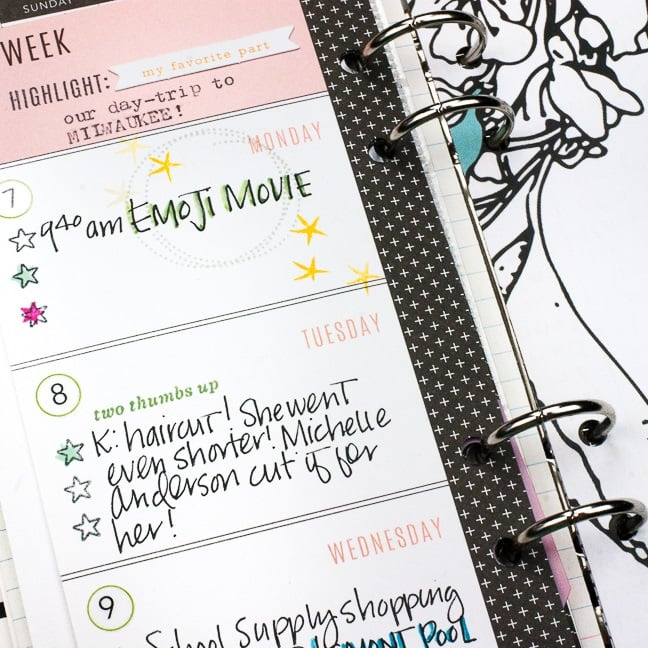 SUNDAY
WEEK
HIGHLIGHT: my favorite part
our day-trip to
MILWAUKEE!
MONDAY
7
9 40 am EMOJI MOVIE
TUESDAY
8
two thumbs up
K: haircut! She went
even shorter! Michelle
anderson cut it for
her!
WEDNESDAY
9
School Supply shopping
POOL